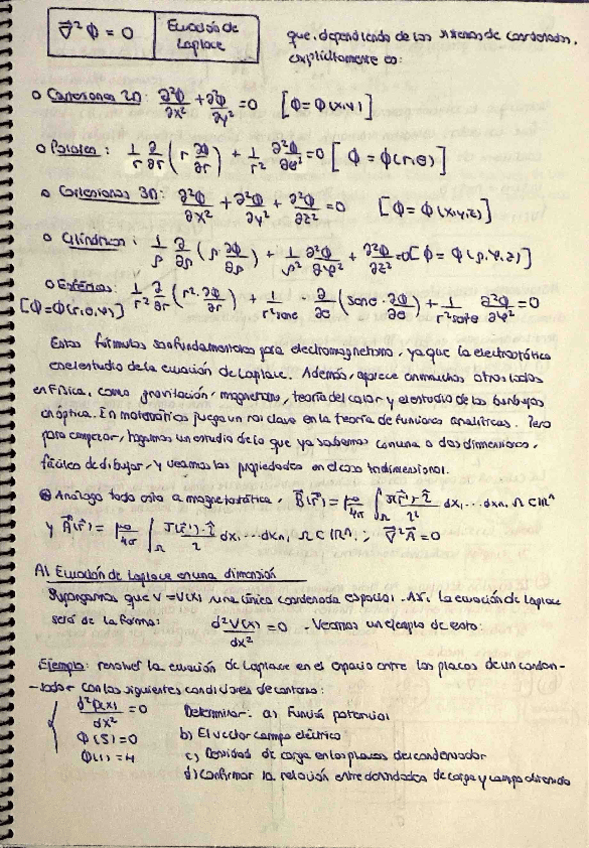 ∇⃗²ϕ = 0 Ecuación de Laplace
que, dependiendo de los sistemas de coordenadas,
explícitamente es:
o Cartesianas 2D: ∂²ϕ/∂x² + ∂²ϕ/∂y² = 0 [ϕ = ϕ(x,y)]
o Polares: 1/r ∂/∂r (r ∂ϕ/∂r) + 1/r² ∂²ϕ/∂θ² = 0 [ϕ = ϕ(r,θ)]
o Cartesianas 3D: ∂²ϕ/∂x² + ∂²ϕ/∂y² + ∂²ϕ/∂z² = 0 [ϕ = ϕ(x,y,z)]
o Cilíndricas: 1/ρ ∂/∂ρ (ρ ∂ϕ/∂ρ) + 1/ρ² ∂²ϕ/∂φ² + ∂²ϕ/∂z² = 0 [ϕ = ϕ(ρ,φ,z)]
o Esféricas: 1/r² ∂/∂r (r² · ∂ϕ/∂r) + 1/r²senθ · ∂/∂θ (senθ · ∂ϕ/∂θ) + 1/r²sen²θ ∂²ϕ/∂φ² = 0
[ϕ=ϕ(r,θ,φ)]
Estas fórmulas son fundamentales para electromagnetismo, ya que la electrostática
es el estudio de la ecuación de Laplace. Además, aparece en muchos otros lados
en Física, como gravitación, magnetismo, teoría del calor y el estudio de las burbujas
en óptica. En matemáticas juega un rol clave en la teoría de funciones analíticas. Pero
para empezar, hagamos un estudio de lo que ya sabemos con una o dos dimensiones,
fáciles de dibujar, y veamos las propiedades en el caso tridimensional.
Análogo todo esto a magnetostática, B⃗(r⃗) = μ₀/4π ∫_Ω J(r⃗')·r̂/r² dx₁...dxₙ, Ω ⊂ ℝⁿ
y A⃗(r⃗) = μ₀/4π ∫_Ω J(r⃗')·r̂/r dx₁...dxₙ, Ω ⊂ ℝⁿ, ∴ ∇⃗²A⃗ = 0
A) Ecuación de Laplace en una dimensión
Supongamos que V = V(x) una única coordenada espacial. Así, la ecuación de Laplace
será de la forma: d²V(x)/dx² = 0. Veamos un ejemplo de esto:
Ejemplo: resolver la ecuación de Laplace en el espacio entre las placas de un conden-
-sador con las siguientes condiciones de contorno:
d²ϕ(x)/dx² = 0 Determinar: a) Función potencial
ϕ(5) = 0 b) El vector campo eléctrico
ϕ(1) = 4 c) Densidad de carga en las placas del condensador
d) Confirmar la relación entre densidades de carga y campo obtenido